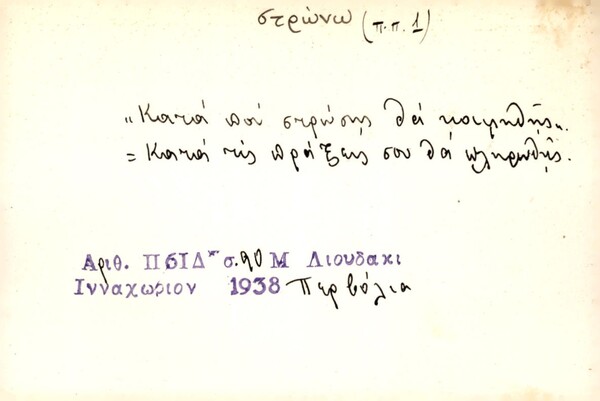 στρώνω (π.π. 1)
"Κατά πού στρώσης θά κοιμηθῆς".
= Κατά τίς πράξεις σου θά πληρωθῆς.
Αριθ. ΠϬΙΔ* σ. 90 Μ Λιουδακι
Ινναχωριον 1938 Περβόλια